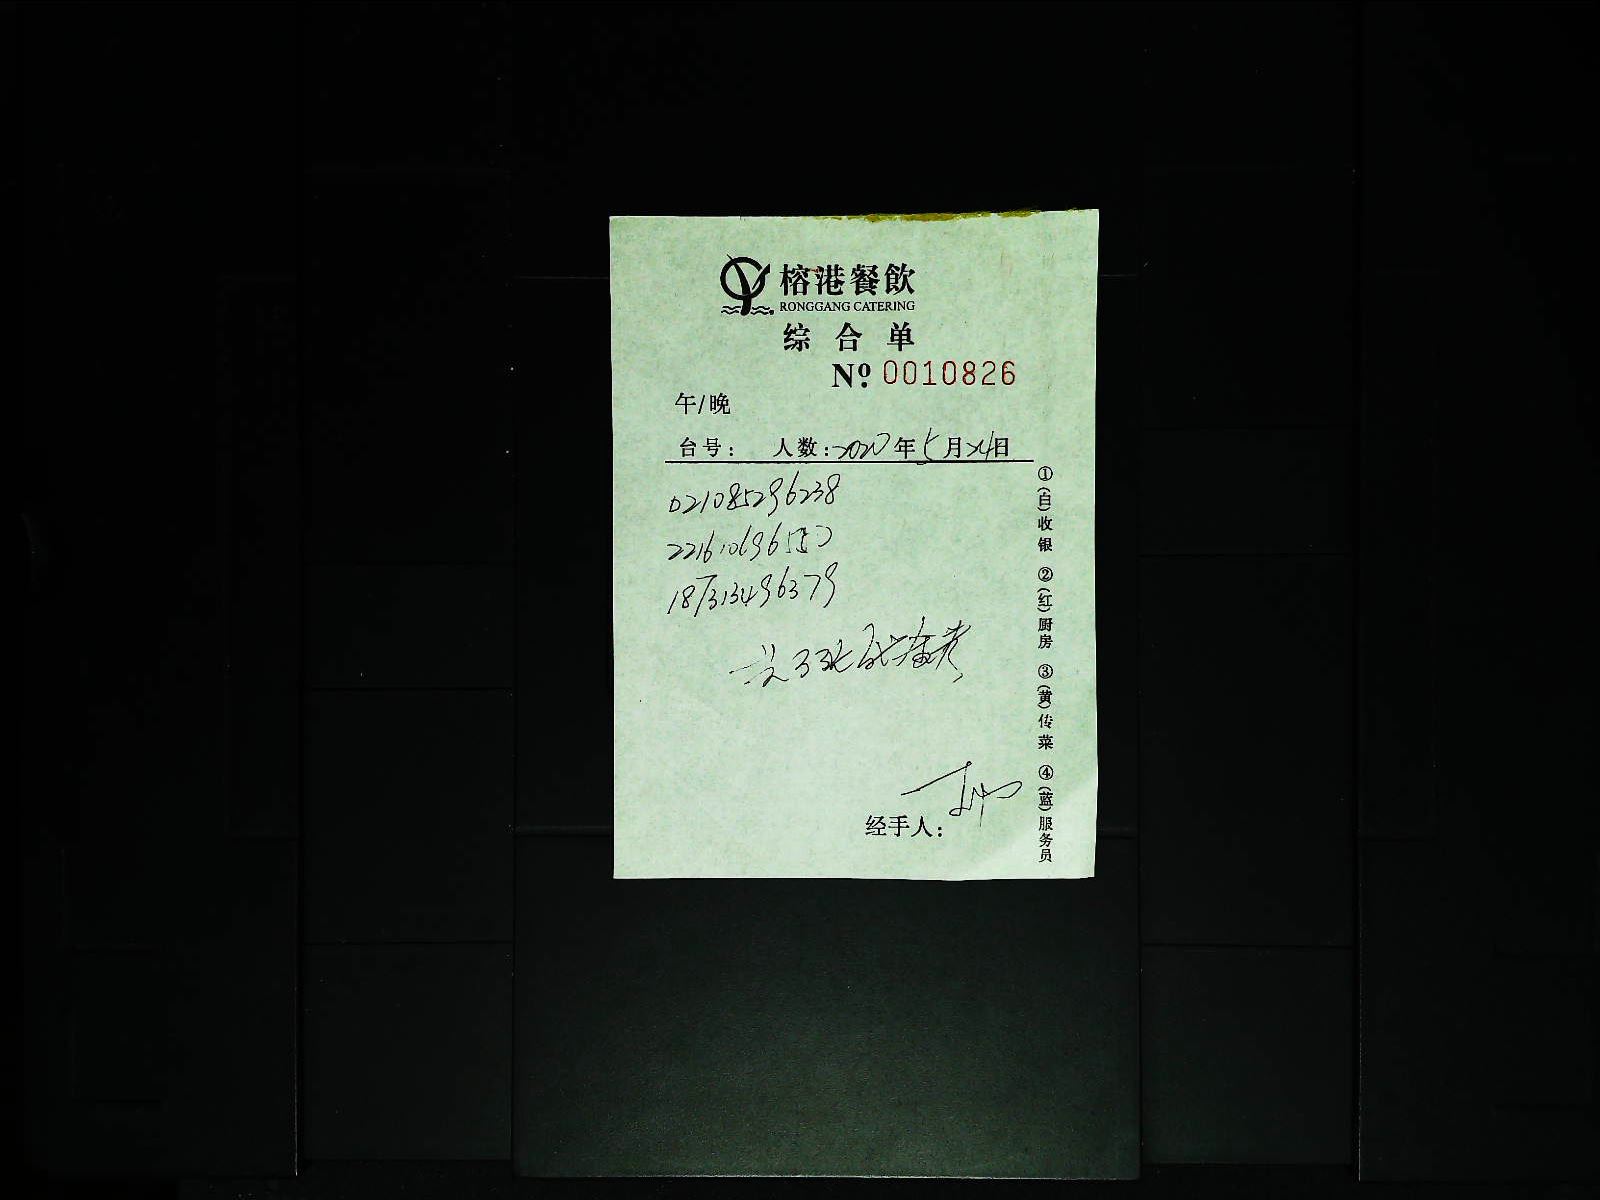 榕港餐飲
RONGGANG CATERING
综合单
Nº 0010826
午/晚
台号： 人数：2020年5月24日
021085296238
187313496379
经手人：
①(白)收银 ②(红)厨房 ③(黄)传菜 ④(蓝)服务员